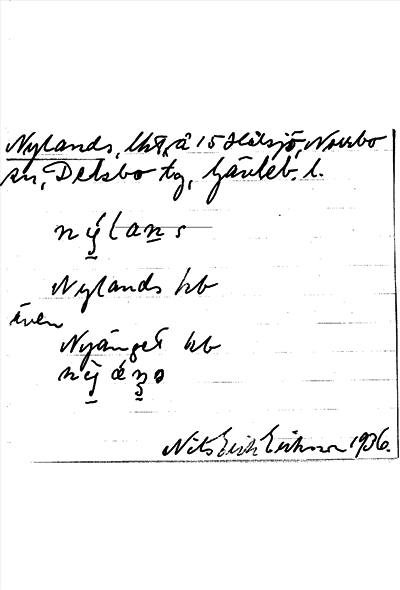 Nylands, lht, å 15 Hålsjö, Norrbo
sn, Delsbo tg, Gävleb. l.
nýlans
Nylands hb
även
Nyänget hb
Nils Erik Eriksson 1936.